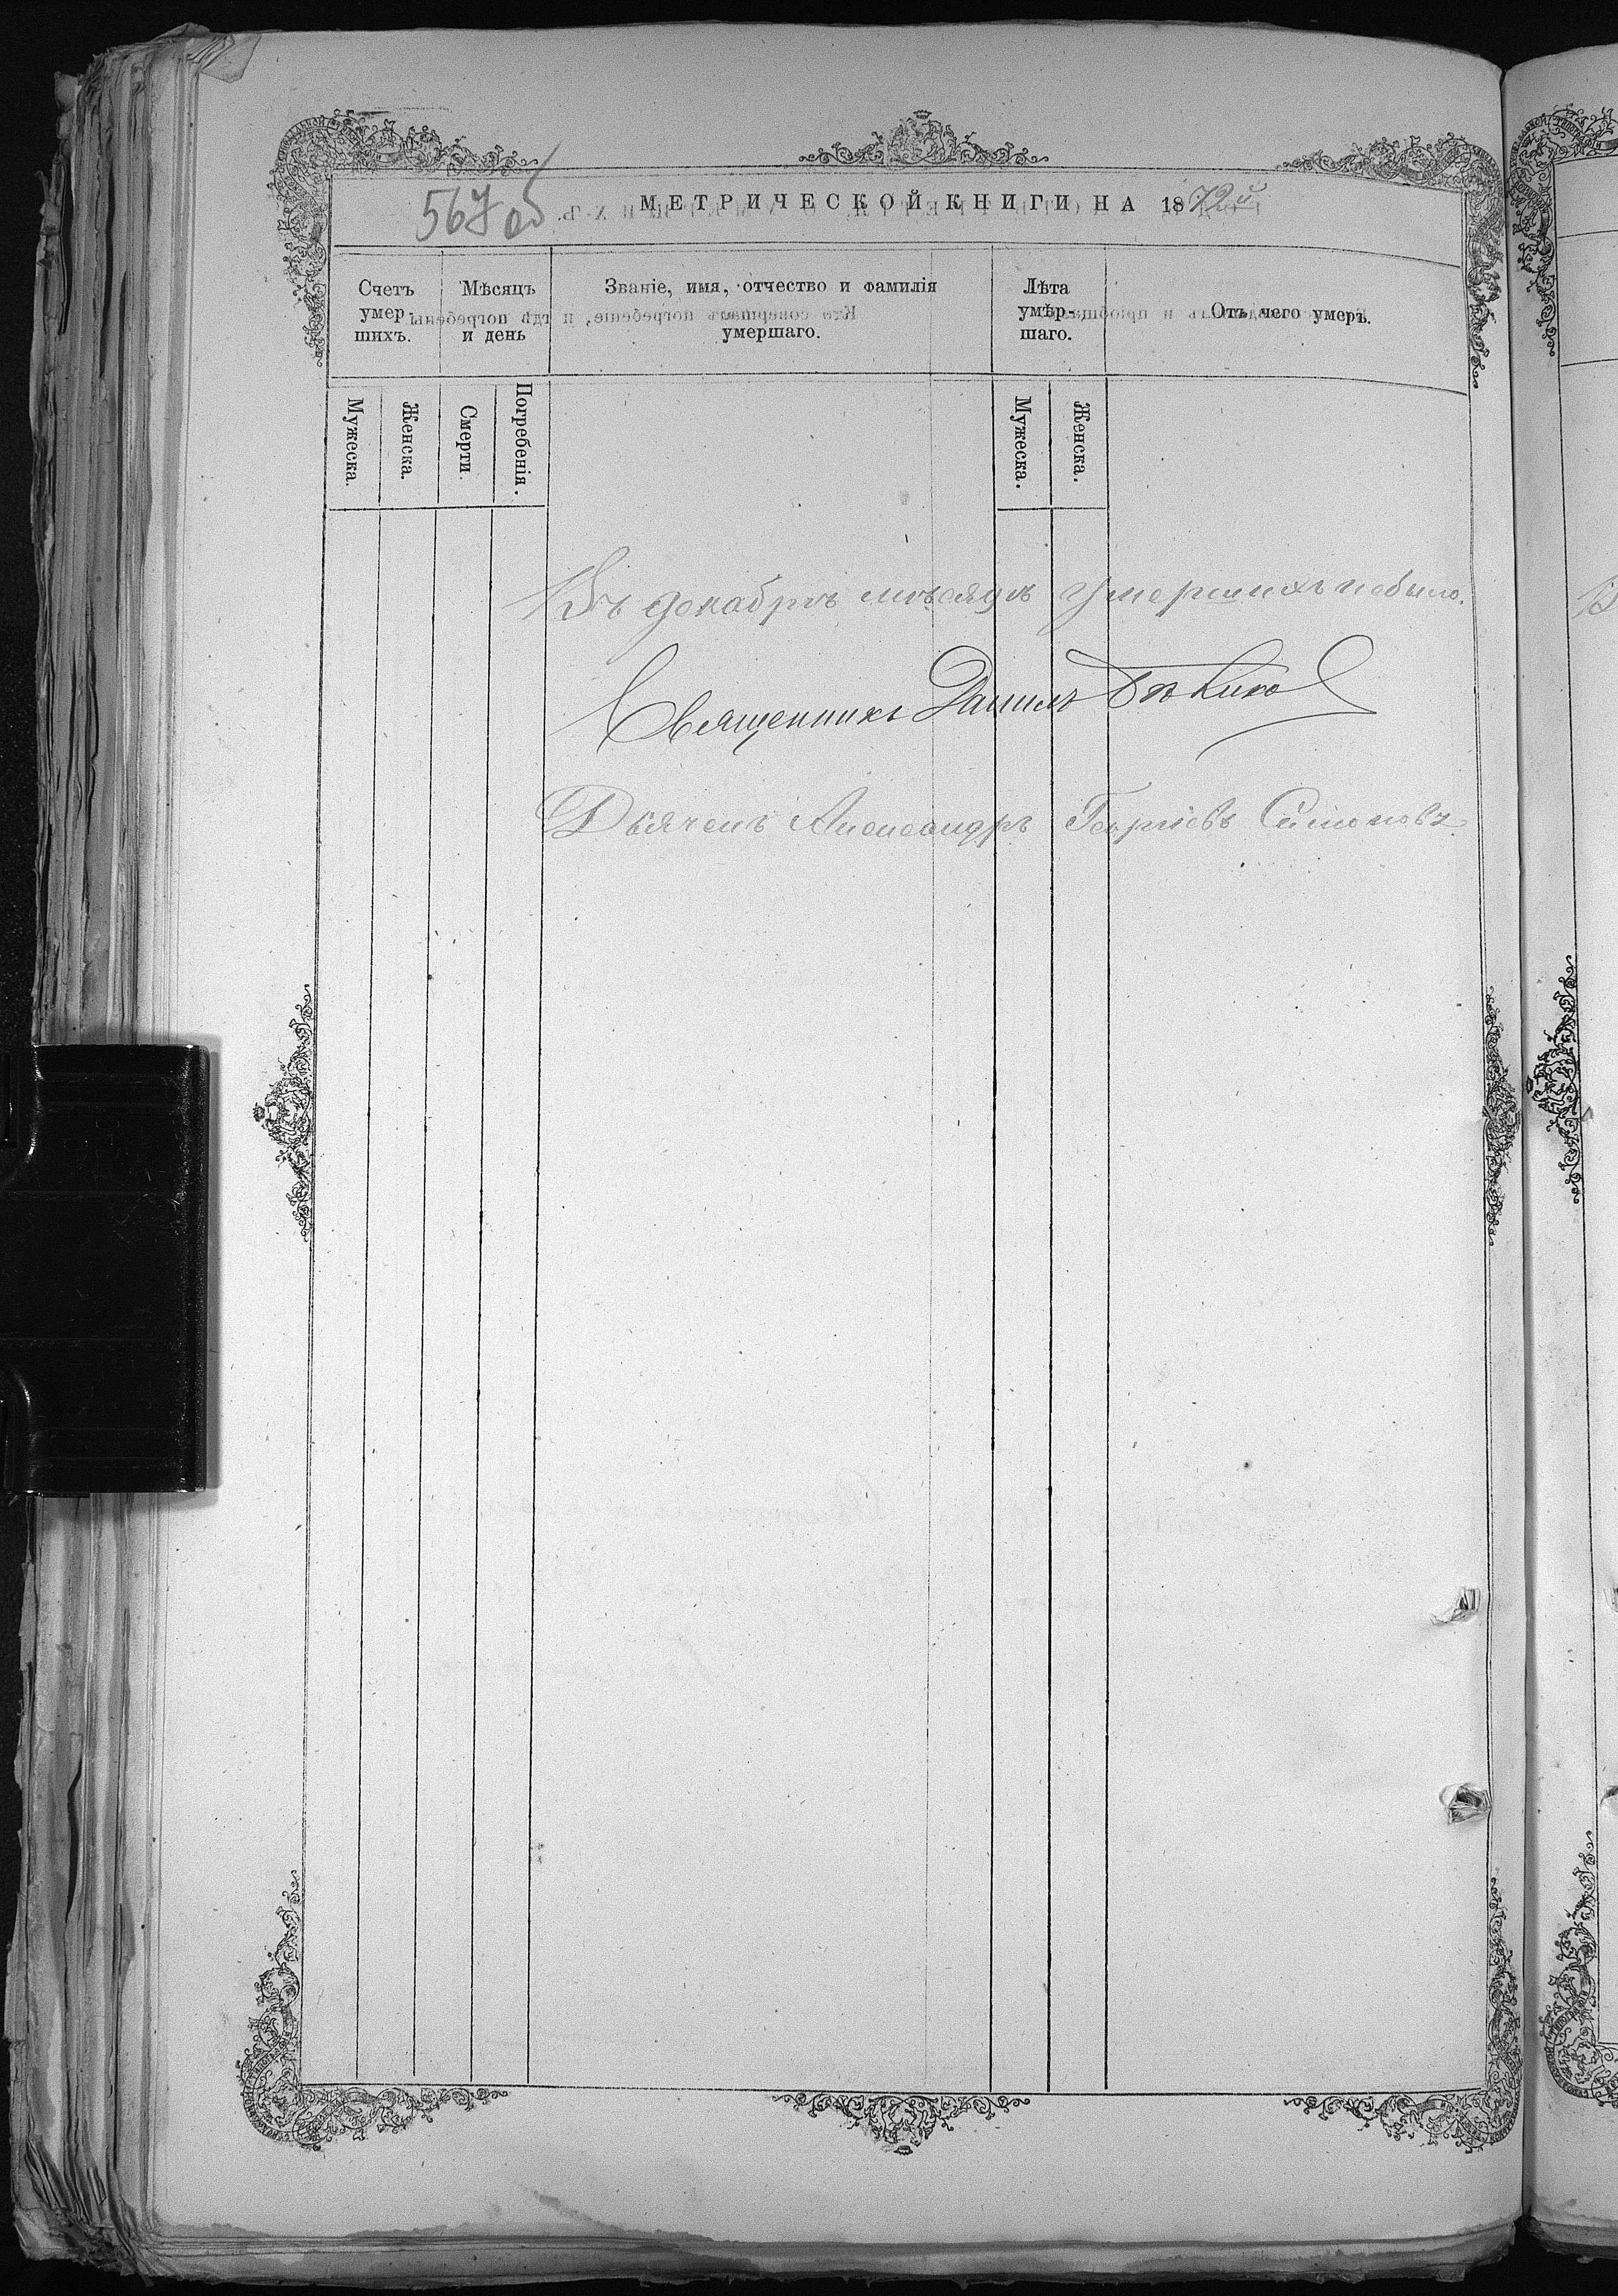 567 об
МЕТРИЧЕСКОЙ КНИГИ НА 1872й
Счетъ умер шихъ.
Мѣсяцъ и день
Званіе, имя, отчество и фамилія умершаго.
Лѣта умер- шаго.
Отъ чего умеръ.
Мужеска.
Женска.
Смерти.
Погребенія.
Мужеска.
Женска.
Въ декабрѣ мѣсяцѣ умершихъ небыло.
Священникъ Данилъ
Дьячекъ Александръ Георгіевъ Симоновъ